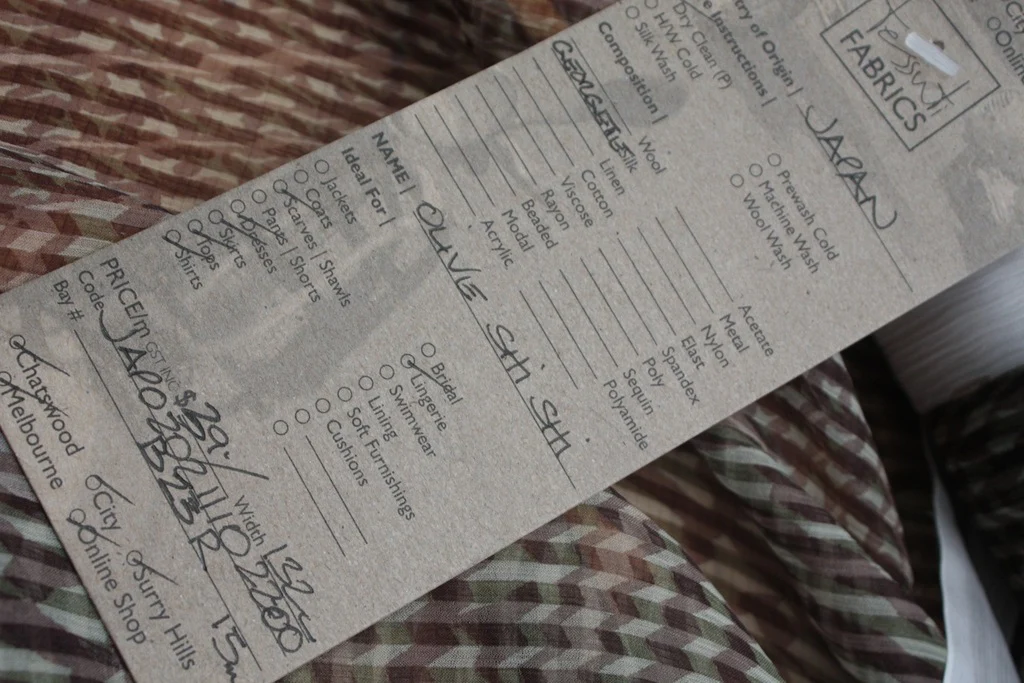 Tessuti
FABRICS
City
Online
try of Origin | JAPAN
e Instructions |
Dry Clean (P)
H/W Cold
Silk Wash
Prewash Cold
Machine Wash
Wool Wash
Composition |
Wool
GEORGETTE Silk
Linen
Cotton
Viscose
Rayon
Beaded
Modal
Acrylic
Acetate
Metal
Nylon
Elast
Spandex
Poly
Sequin
Polyamide
NAME | OLIVIE STH STH
Ideal For |
Jackets
Coats
Scarves | Shawls
Pants | Shorts
Dresses
Skirts
Tops
Shirts
Bridal
Lingerie
Swimwear
Lining
Soft Furnishings
Cushions
PRICE/m GST INC $39./ Width 132
Code
Bay # 15m
Chatswood
Melbourne
City
Surry Hills
Online Shop